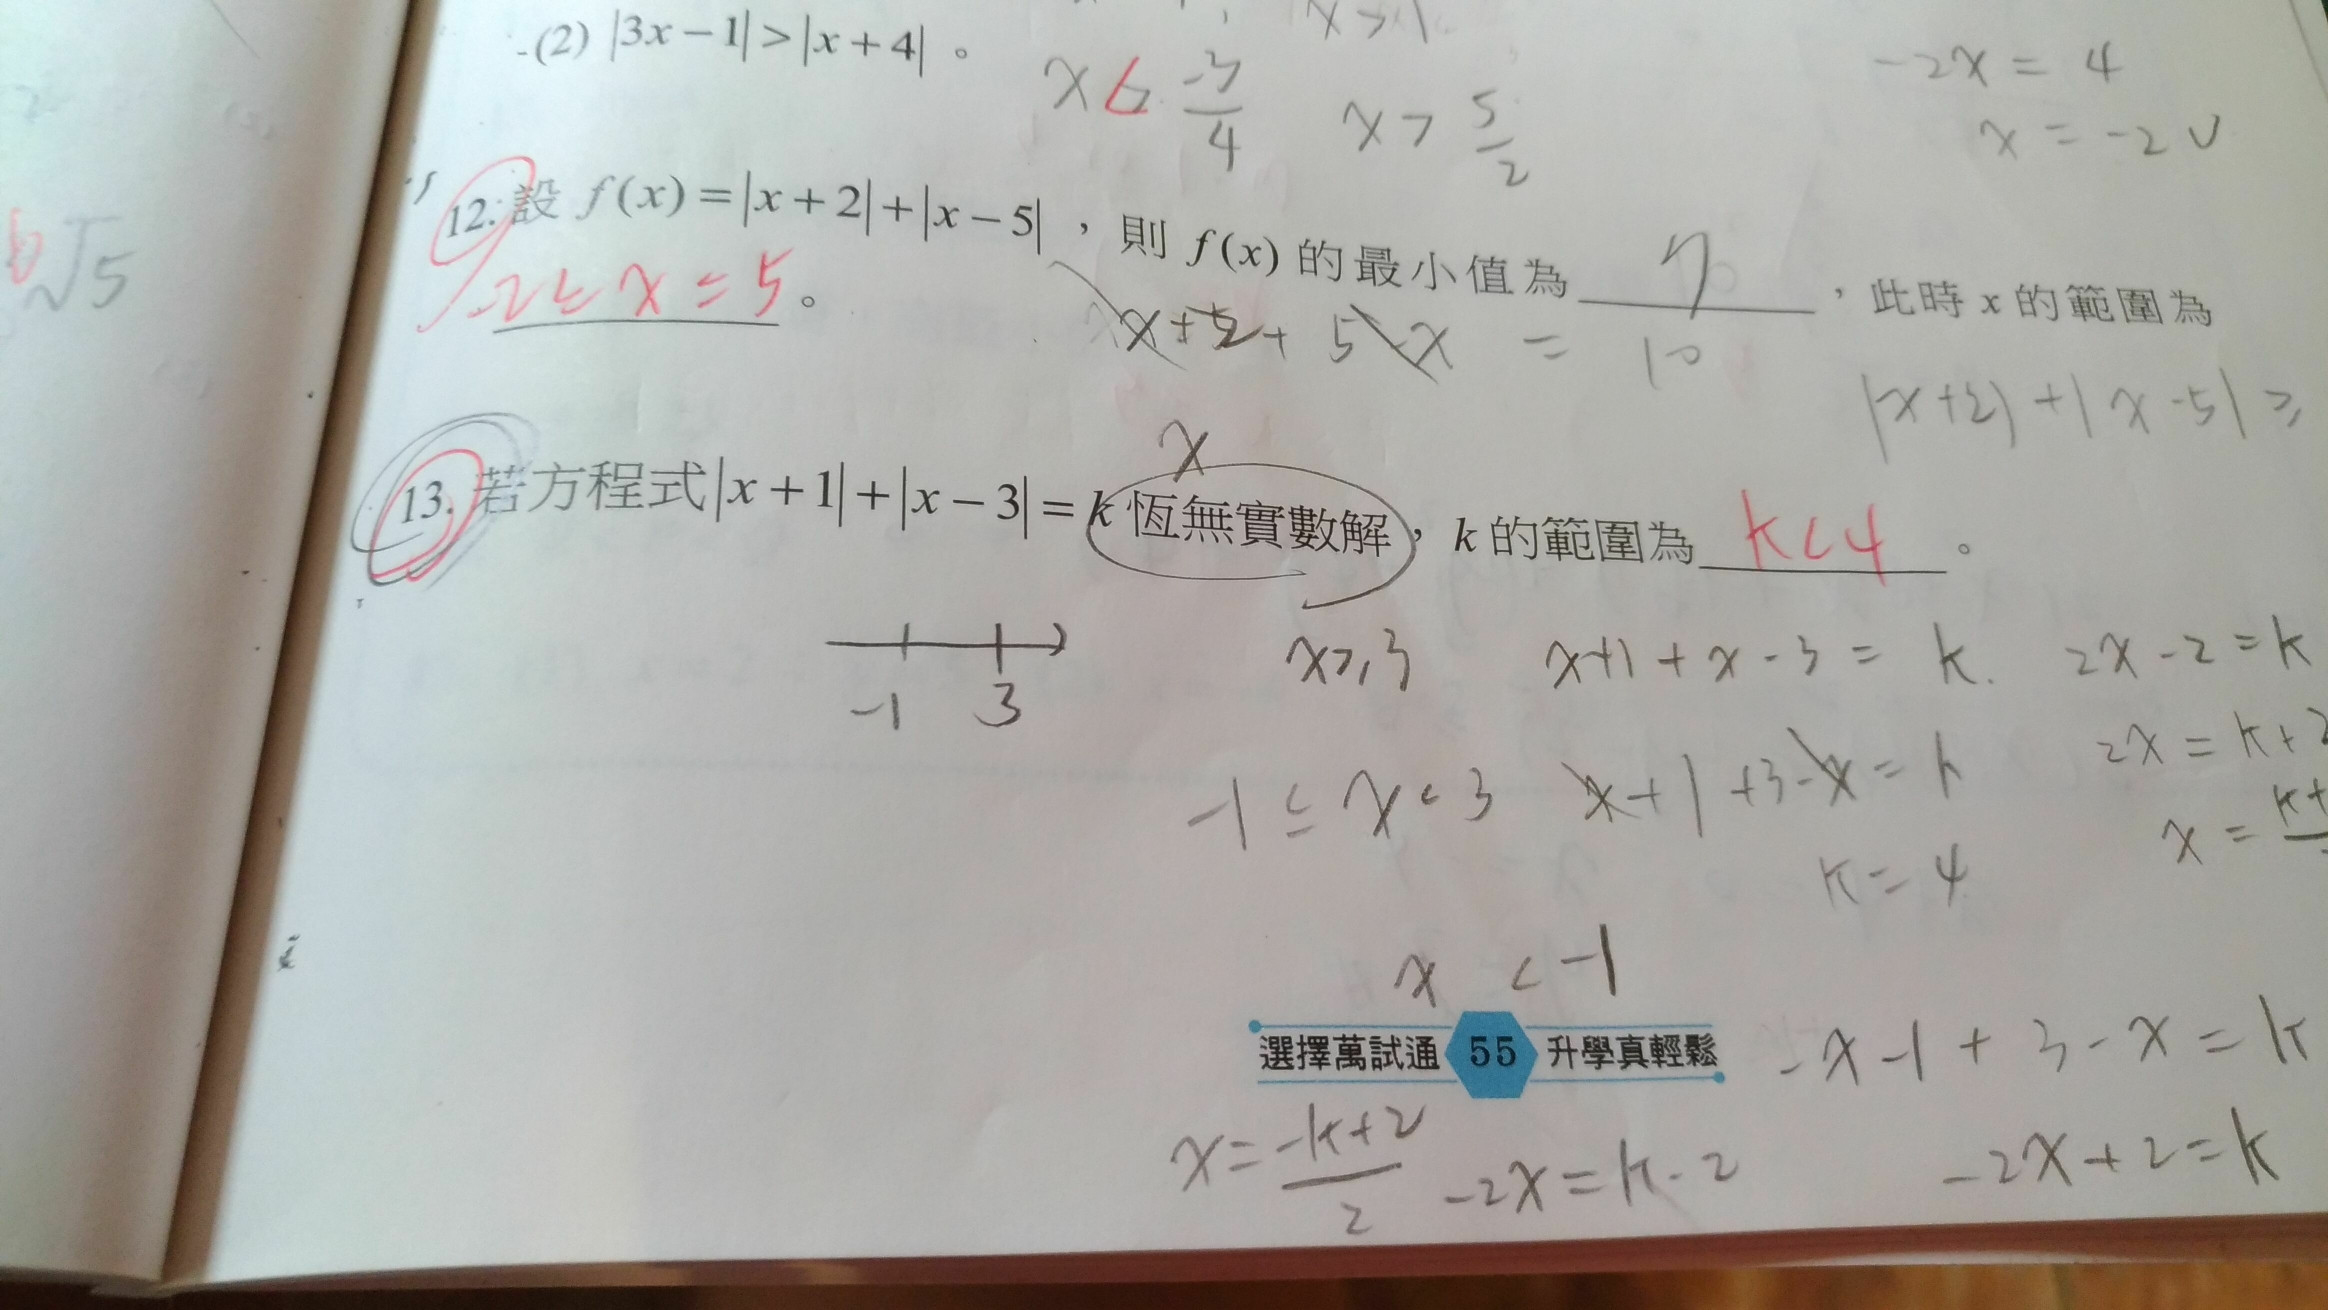 (2) |3x-1|>|x+4|。
x>1
-2x = 4
x = -2
x < -3/4
x > 5/2
√5
12. 設 f(x)=|x+2|+|x-5|，則 f(x) 的最小值為 7，此時 x 的範圍為
-2≤x≤5。
x+2+5-x = 10
|x+2|+|x-5|≥
x
13. 若方程式|x+1|+|x-3|=k 恆無實數解，k 的範圍為 k<4。
-1 3
x≥3 x+1+x-3=k. 2x-2=k
2x=k+2
-1≤x<3 x+1+3-x=k
k=4
x<-1
-x-1+3-x=k
選擇萬試通 55 升學真輕鬆
-2x+2=k
-2x=k-2
x=-k+2/2